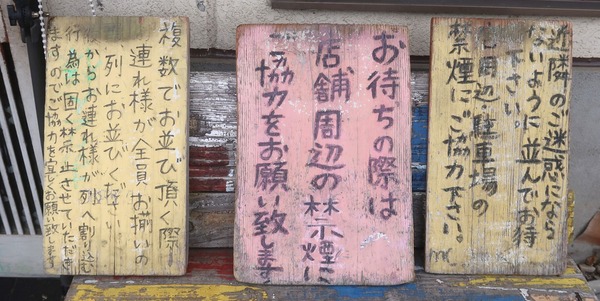 近隣のご迷惑になら
ないように並んでお待
下さい。
周辺駐車場の
禁煙にご協力下さい。
お待ちの際は
店舗周辺の禁煙に
ご協力をお願い致します
複数でお並び頂く際
連れ様が全員お揃いの
列にお並びください
からお連れ様が列へ割り込む
行為は固く禁止させていただき
ますのでご協力を宜しくお願い致します